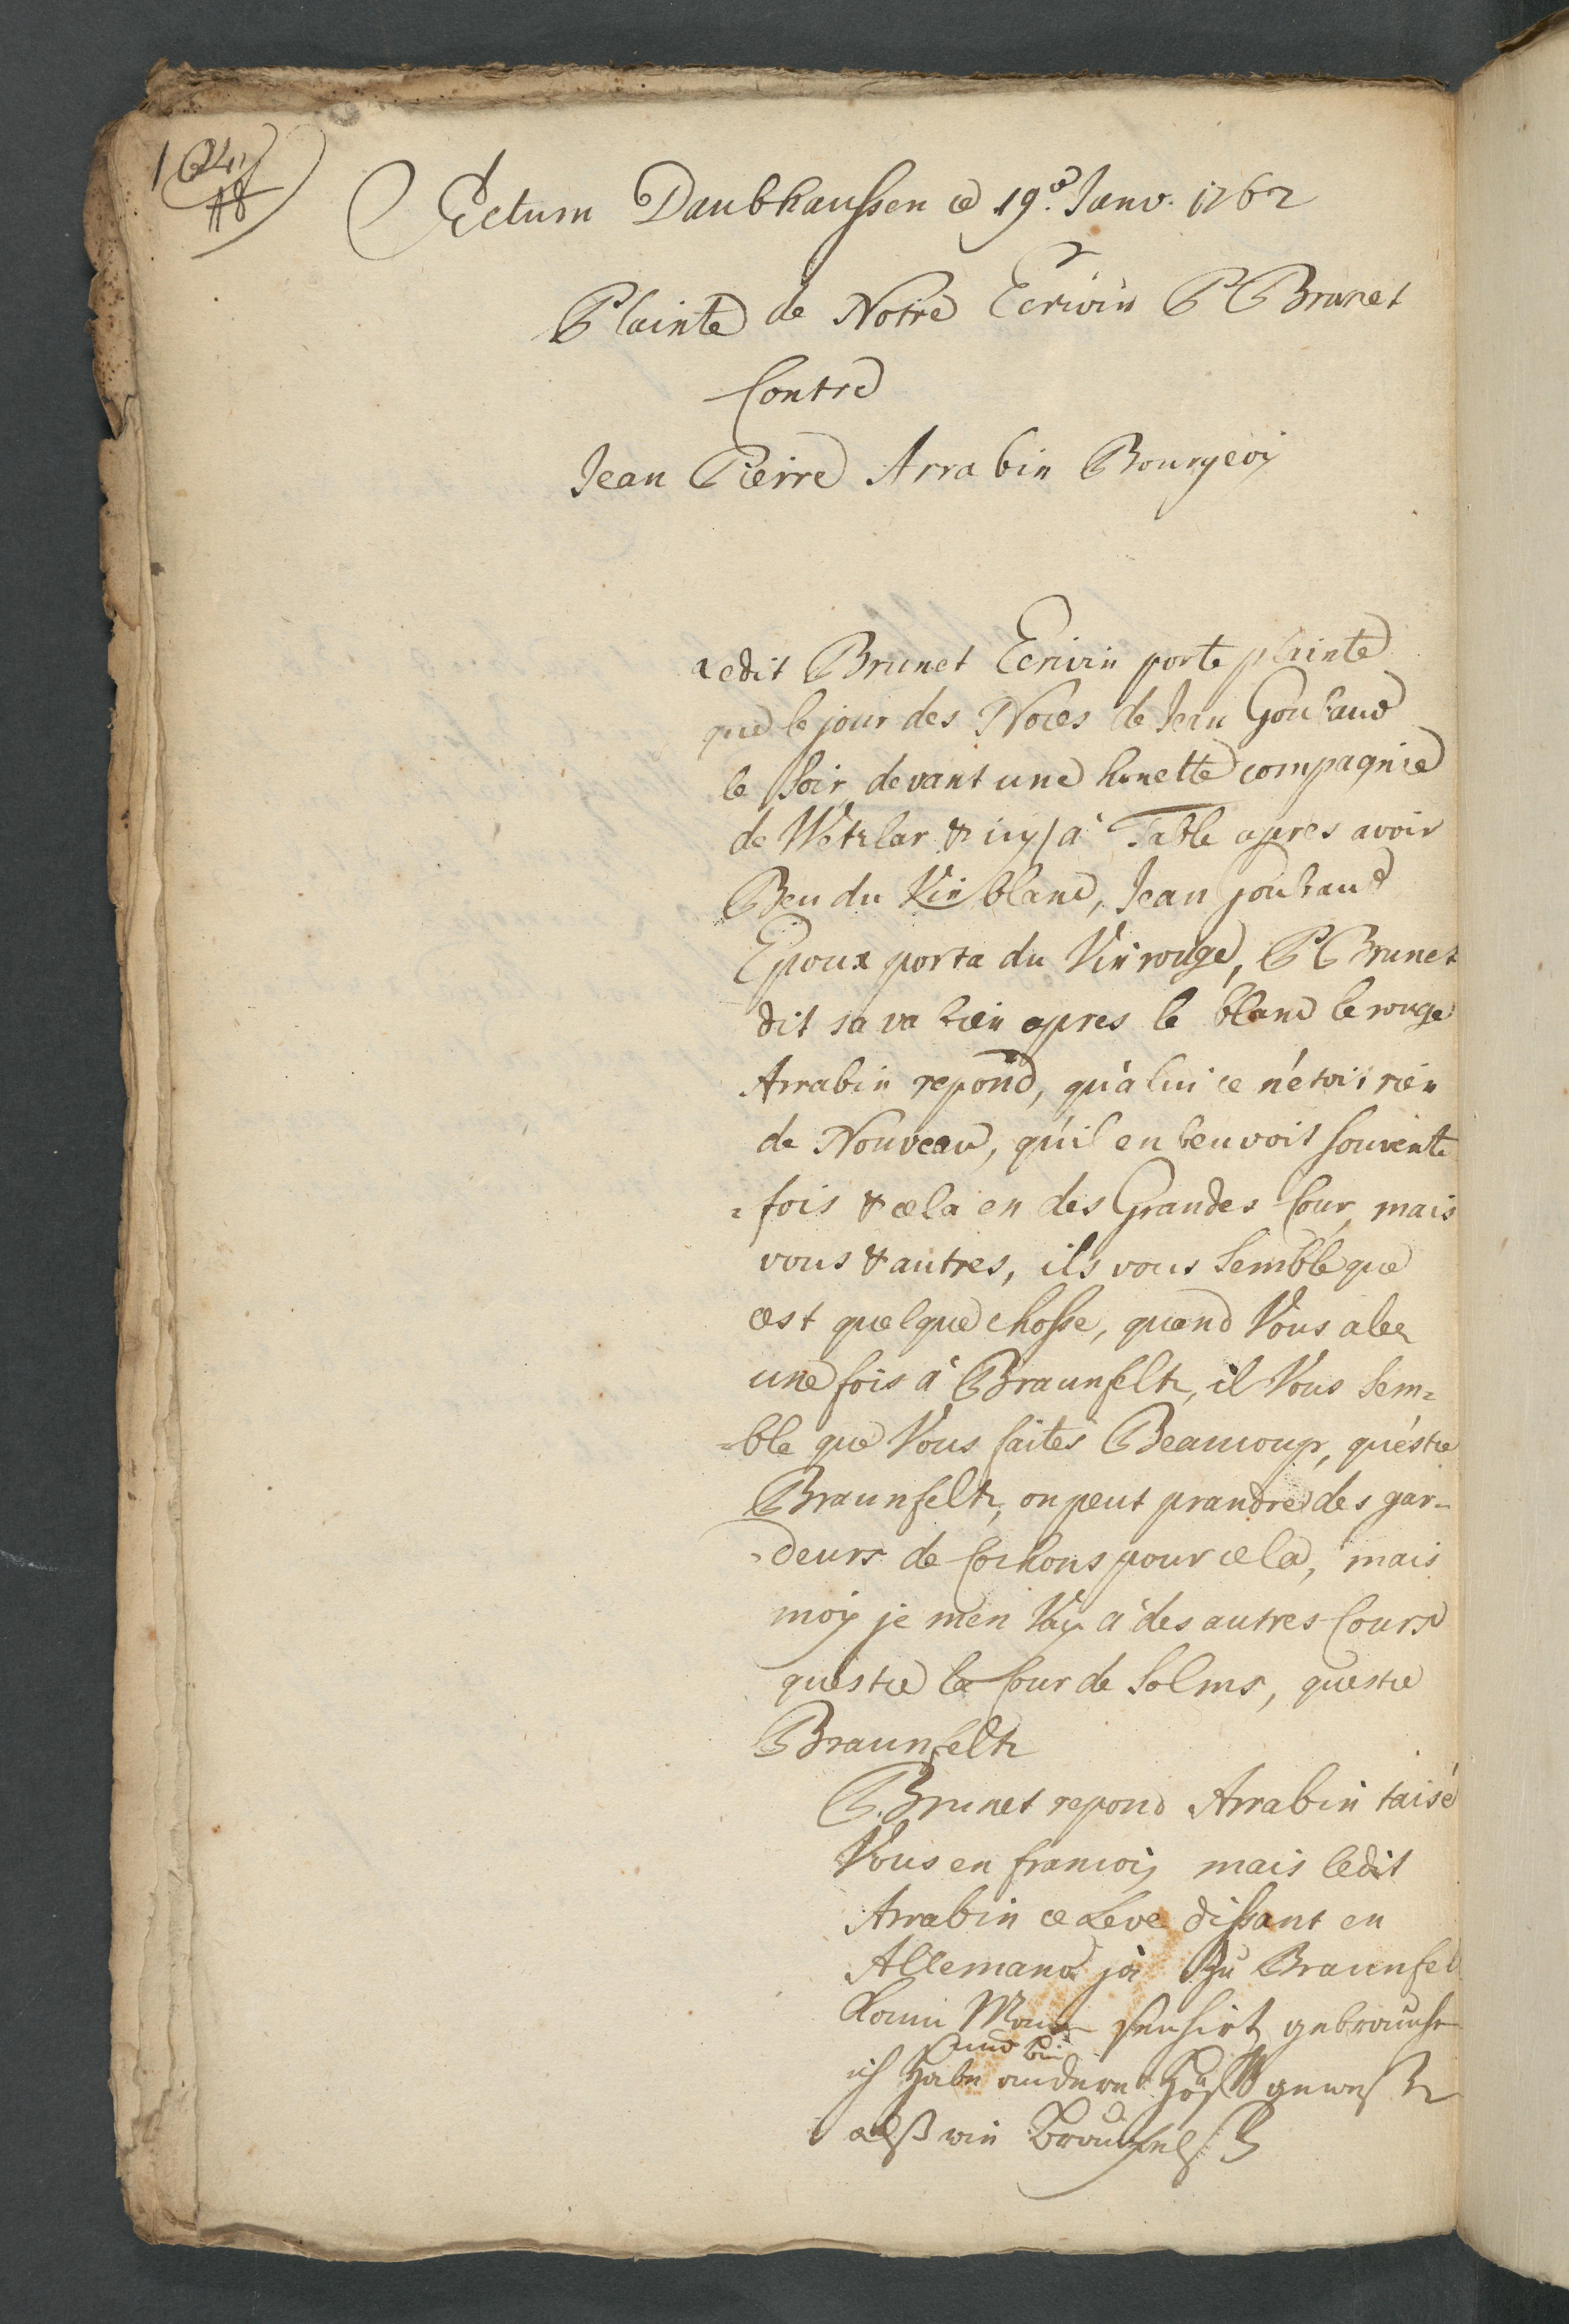 Actum Daubhaussen ce 19.e Janv. 1762
Plainte de Notre Ecrivin P Brunet
Contre
Jean Pierre Arrabin Bourgeoi
Ledit Brunet Ecrivin porte plainte
que le jour des Noces de Jean Goubaud
le soir devant une honette compagnie
de Wetzlar & icy / à Table apres avoir
Beu du Vin blanc, Jean Goubaud
Epoux porta du Vin rouge, P Brunet
dit sa va bien apres le blanc le rouge
Arrabin repond, qu'a lui ce n'etoit rien
de Nouveau, qu'il en beuvoit souvente
=fois & cela en des Grandes Cour, mais
vous & autres, ils vous Semble que
cest quelque chosse, quand Vous alez
une fois à Braunfeltz, il Vous Sem=
=ble que Vous faites Beaucoup, qu'estce
Braunfeltz, on peut prandre des gar=
=deurs de Cochons pour cela, mais
moy je men Vay à des autres Cours
questce la Cour de Solms, questce
Braunfeltz
P. Brunet repond Arrabin taisé
Vous en francois mais ledit
Arrabin ce Leve dissant en
Allemand ja Zu Braunfel
Kann Man seuhirt gebrauche
und bin
ich habe andere Höff gewest
alß ein Braunfelß